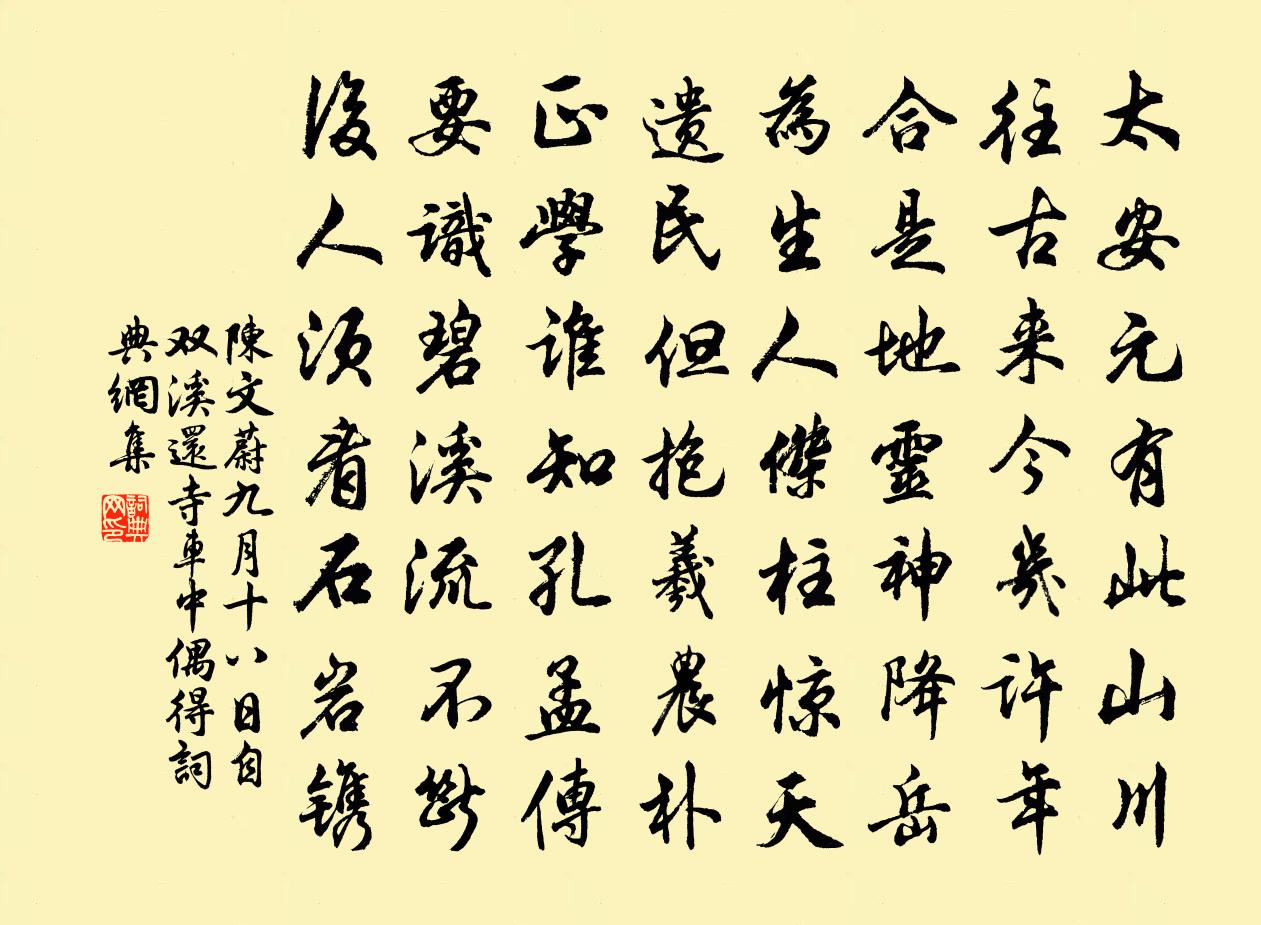 太安元有此山川
往古来今幾許年
合是地靈神降岳
為生人傑柱惊天
遗民但抱羲農朴
正學誰知孔孟傳
要識碧溪流不斷
後人須看石岩镌
陳文蔚九月十八日自
双溪還寺車中偶得詞
典網集
詞典網印